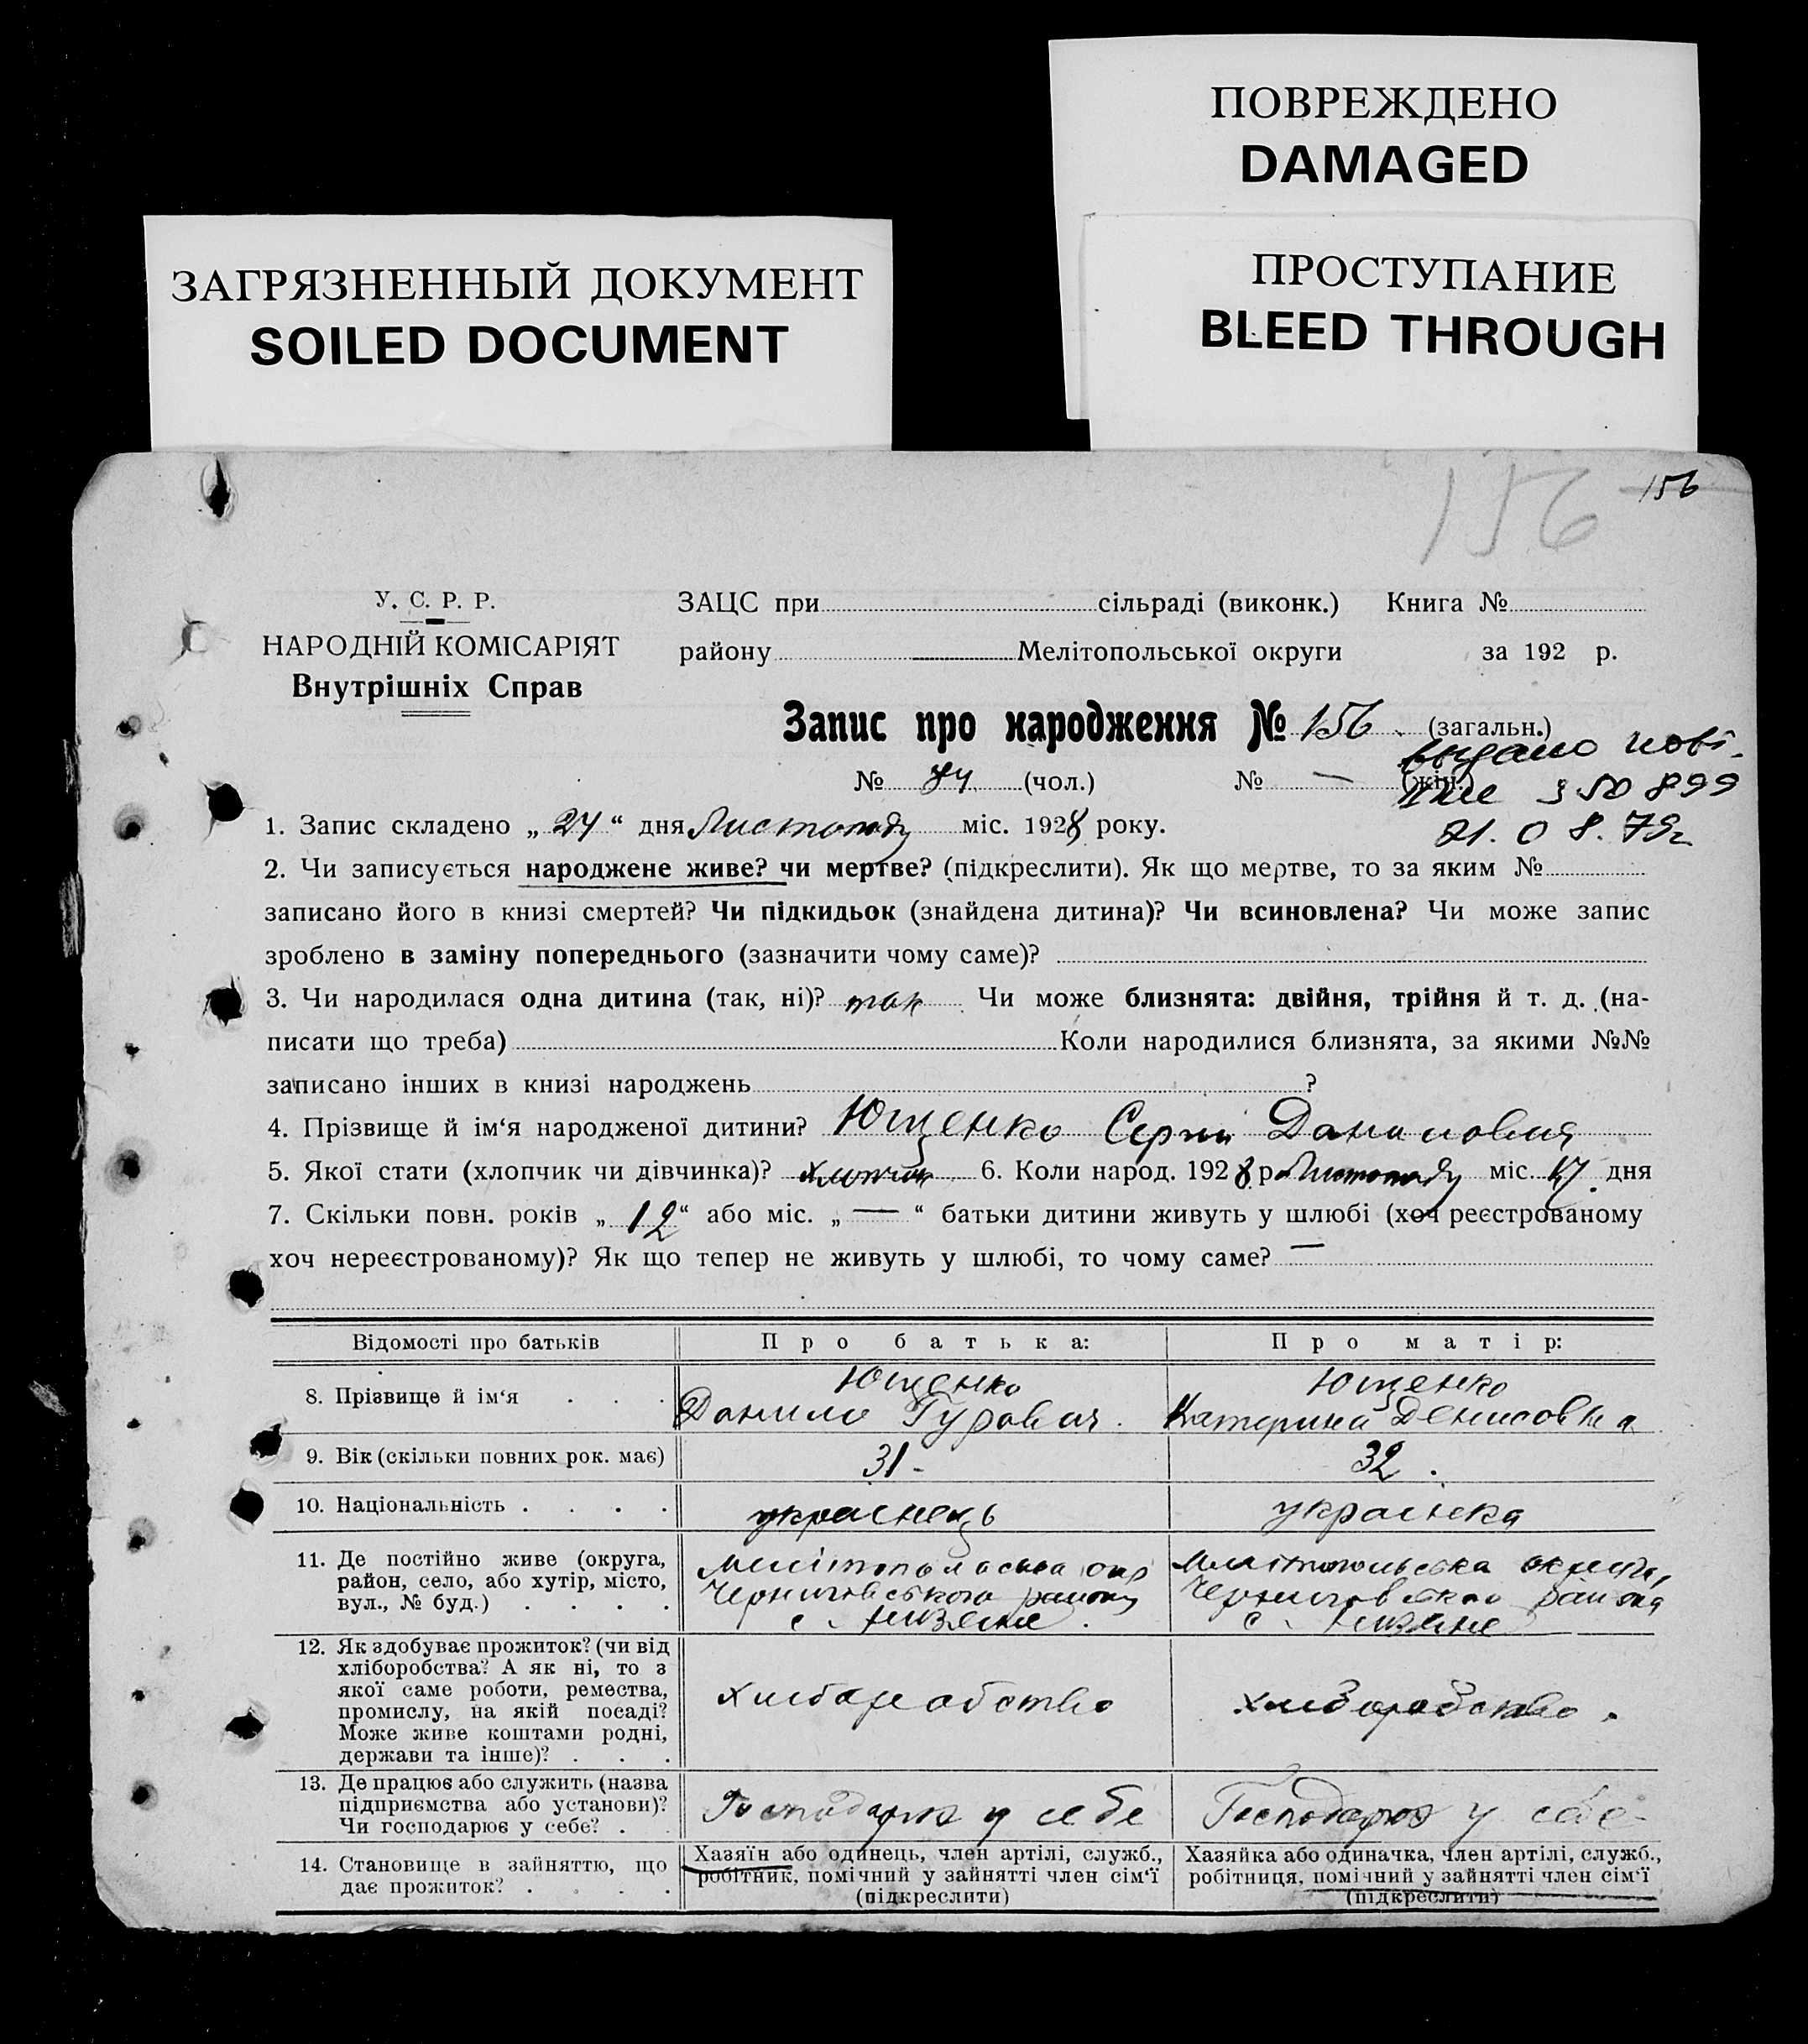 ПОВРЕЖДЕНО
DAMAGED
ЗАГРЯЗНЕННЫЙ ДОКУМЕНТ
SOILED DOCUMENT
ПРОСТУПАНИЕ
BLEED THROUGH
156
156
У. С. Р. Р.
НАРОДНІЙ КОМІСАРІЯТ
Внутрішніх Справ
ЗАЦС при сільраді (виконк.) Книга №
району Мелітопольської округи за 192 р.
Запис про народження № 156 (загальн.)
№ 84 (чол.) № — (жін.)
выдано пові-
350899
21.08.79г
1. Запис складено „24“ дня Листопаду міс. 1928 року.
2. Чи записується народжене живе? чи мертве? (підкреслити). Як що мертве, то за яким №
записано його в книзі смертей? Чи підкидьок (знайдена дитина)? Чи всиновлена? Чи може запис
зроблено в заміну попереднього (зазначити чому саме)?
3. Чи народилася одна дитина (так, ні)? так Чи може близнята: двійня, трійня й т. д. (на-
писати що треба) Коли народилися близнята, за якими №№
записано інших в книзі народжень ?
4. Прізвище й ім‘я народженої дитини? Ющенко Сергій Данилович
5. Якої стати (хлопчик чи дівчинка)? хлопчик 6. Коли народ. 1928 р. Листопаду міс. 17 дня
7. Скільки повн. років „12“ або міс. „—“ батьки дитини живуть у шлюбі (хоч реєстрованому
хоч нереєстрованому)? Як що тепер не живуть у шлюбі, то чому саме? —
Відомості про батьків Про батька: Про матір:
8. Прізвище й ім‘я . . .
Ющенко
Данило Гурович.
Ющенко
Катерина Денисовна
9. Вік (скільки повних рок. має) 31- 32.
10. Національність . . . . украінець украінка
11. Де постійно живе (округа,
район, село, або хутір, місто,
вул., № буд.) . . . .
Мелітопольська окр
Чернигівського району
с.
Мелітопольська округи,
Чернигівського района
с.
12. Як здобуває прожиток? (чи від
хліборобства? А як ні, то з
якої саме роботи, ремества,
промислу, на якій посаді?
Може живе коштами родні,
держави та інше)? . . .
хліборобство
хліборобство.
13. Де працює або служить (назва
підприємства або установи)?
Чи господарює у себе? .
Господарює у себе
Господарює у себе
14. Становище в зайняттю, що
дає прожиток? . . . .
Хазяїн або одинець, член артілі, служб.,
робітник, помічний у зайнятті член сім‘ї
(підкреслити)
Хазяйка або одиначка, член артілі, служб.,
робітниця, помічний у зайнятті член сім‘ї
(підкреслити)